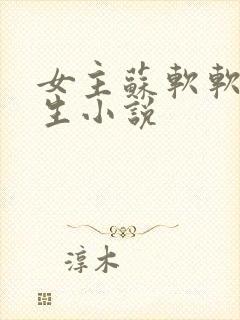 女主蘇軟軟
生小說
淳木